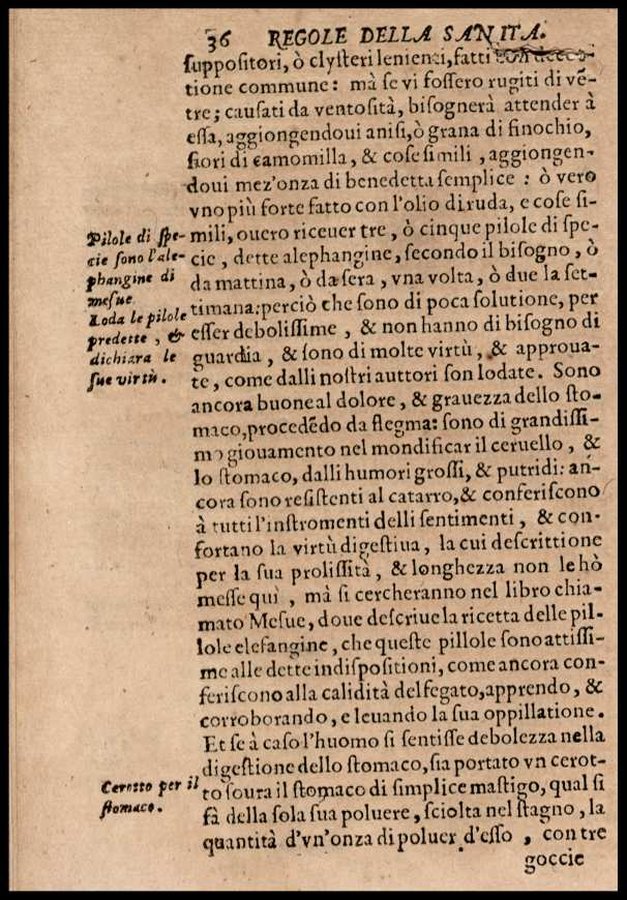 36 REGOLE DELLA SANITA.
ſuppoſitori, ò clyſteri lenienti, fatti con decot-
tione commune: mà ſe vi foſſero rugiti di vẽ-
tre; cauſati da ventoſità, biſognerà attender à
eſſa, aggiongendoui aniſi, ò grana di finochio,
fiori di camomilla, & coſe ſimili, aggiongen-
doui mez'onza di benedetta ſemplice: ò vero
vno più forte fatto con l'olio di ruda, e coſe ſi-
mili, ouero riceuer tre, ò cinque pilole di ſpe-
cie, dette alephangine, ſecondo il biſogno, ò
da mattina, ò da ſera, vna volta, ò due la ſet-
timana: perciò che ſono di poca ſolutione, per
eſſer deboliſſime, & non hanno di biſogno di
guardia, & ſono di molte virtù, & approua-
te, come dalli noſtri auttori ſon lodate. Sono
ancora buone al dolore, & grauezza dello ſto-
maco, procedẽdo da flegma: ſono di grandiſſi-
mo giouamento nel mondificar il ceruello, &
lo ſtomaco, dalli humori groſſi, & putridi: an-
cora ſono reſiſtenti al catarro, & conferiſcono
à tutti l'inſtromenti delli ſentimenti, & con-
fortano la virtù digeſtiua, la cui deſcrittione
per la ſua proliſſità, & longhezza non le hò
meſſe quì, mà ſi cercheranno nel libro chia-
mato Meſue, doue deſcriue la ricetta delle pil-
lole elefangine, che queſte pillole ſono attiſſi-
me alle dette indiſpoſitioni, come ancora con-
feriſcono alla calidità del fegato, apprendo, &
corroborando, e leuando la ſua oppillatione.
Et ſe à caſo l'huomo ſi ſentiſſe debolezza nella
digeſtione dello ſtomaco, ſia portato vn cerot-
to ſoura il ſtomaco di ſimplice maſtigo, qual ſi
fà della ſola ſua poluere, ſciolta nel ſtagno, la
quantità d'vn'onza di poluer d'eſſo, con tre
goccie
Pilole di ſpe-
cie ſono l'ale-
phangine di
meſue
Loda le pilole
predette, &
dichiara le
ſue virtù.
Cerotto per il
ſtomaco.